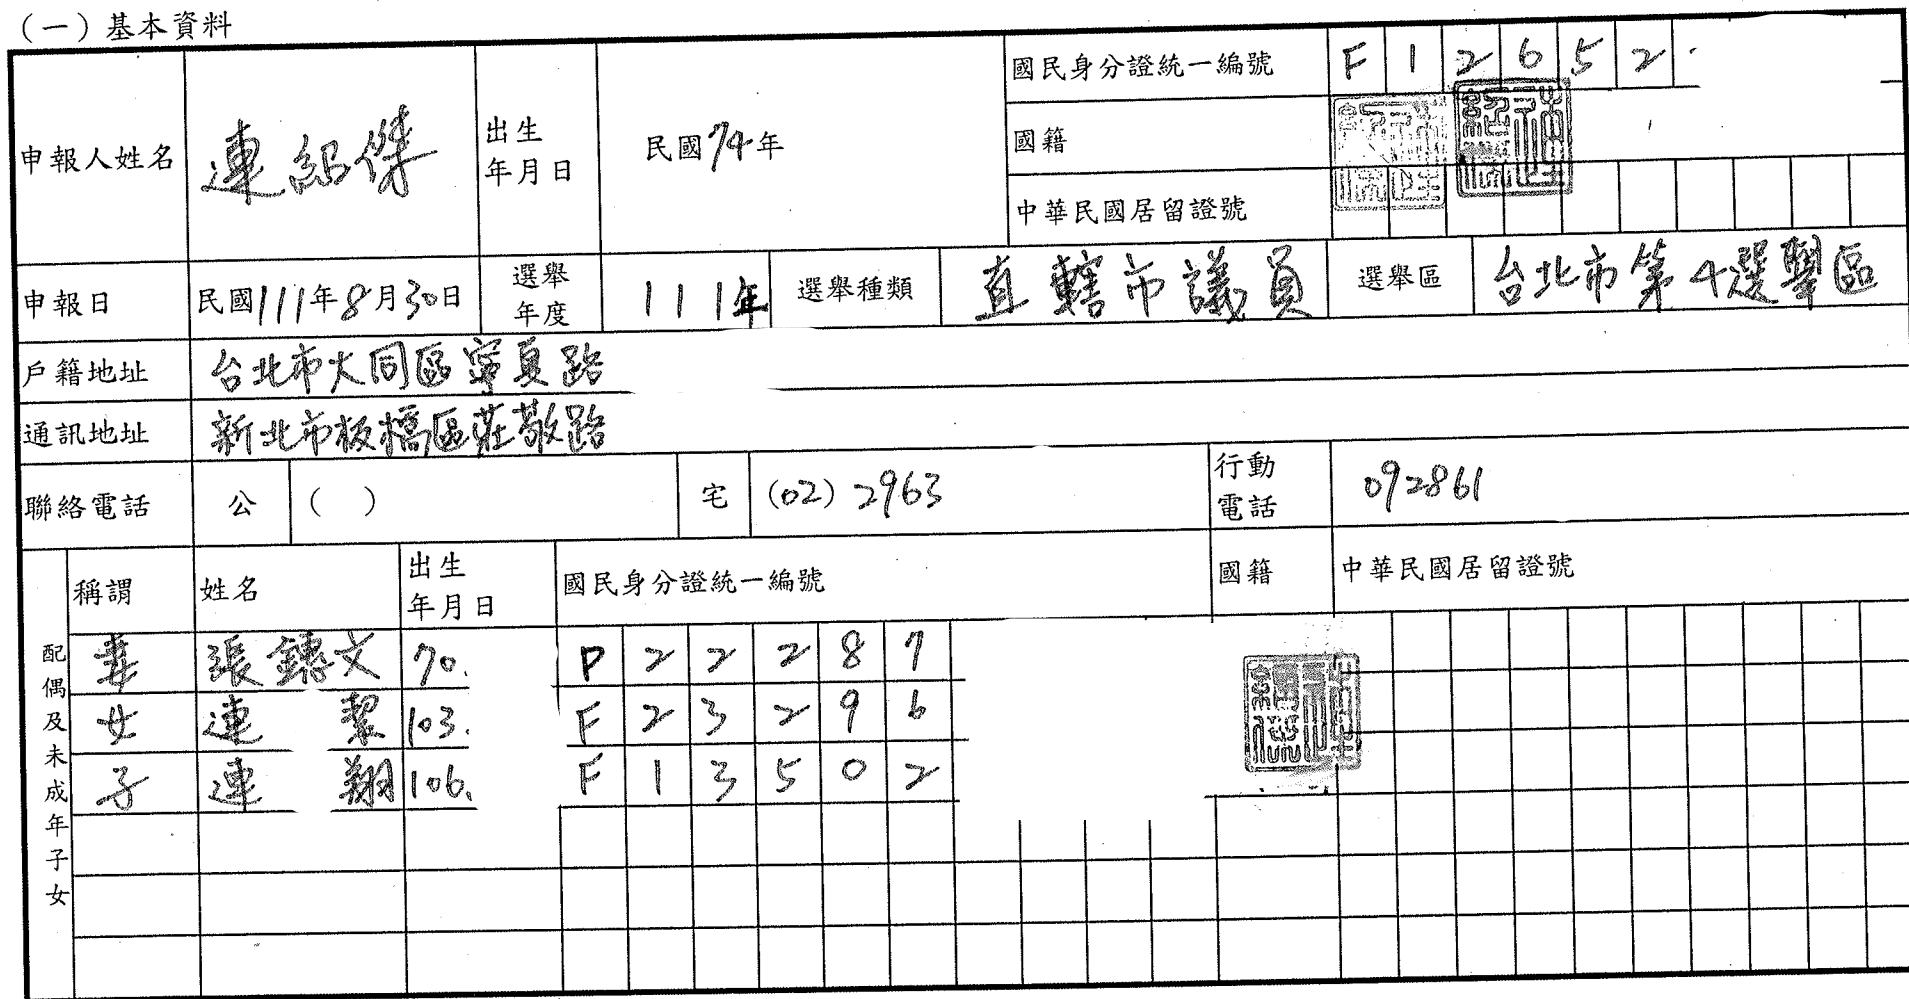 （一）基本資料
申報人姓名 連紹傑 出生年月日 民國74年 國民身分證統一編號 F12652
國籍
中華民國居留證號
申報日 民國111年8月30日 選舉年度 111年 選舉種類 直轄市議員 選舉區 台北市第4選舉區
戶籍地址 台北市大同區寧夏路
通訊地址 新北市板橋區莊敬路
聯絡電話 公 ( ) 宅 (02) 2963 行動電話 092861
配偶及未成年子女 稱謂 姓名 出生年月日 國民身分證統一編號 國籍 中華民國居留證號
妻 張 文 70. P22287
女 連 潔 103. F23296
子 連 翔 106. F13502